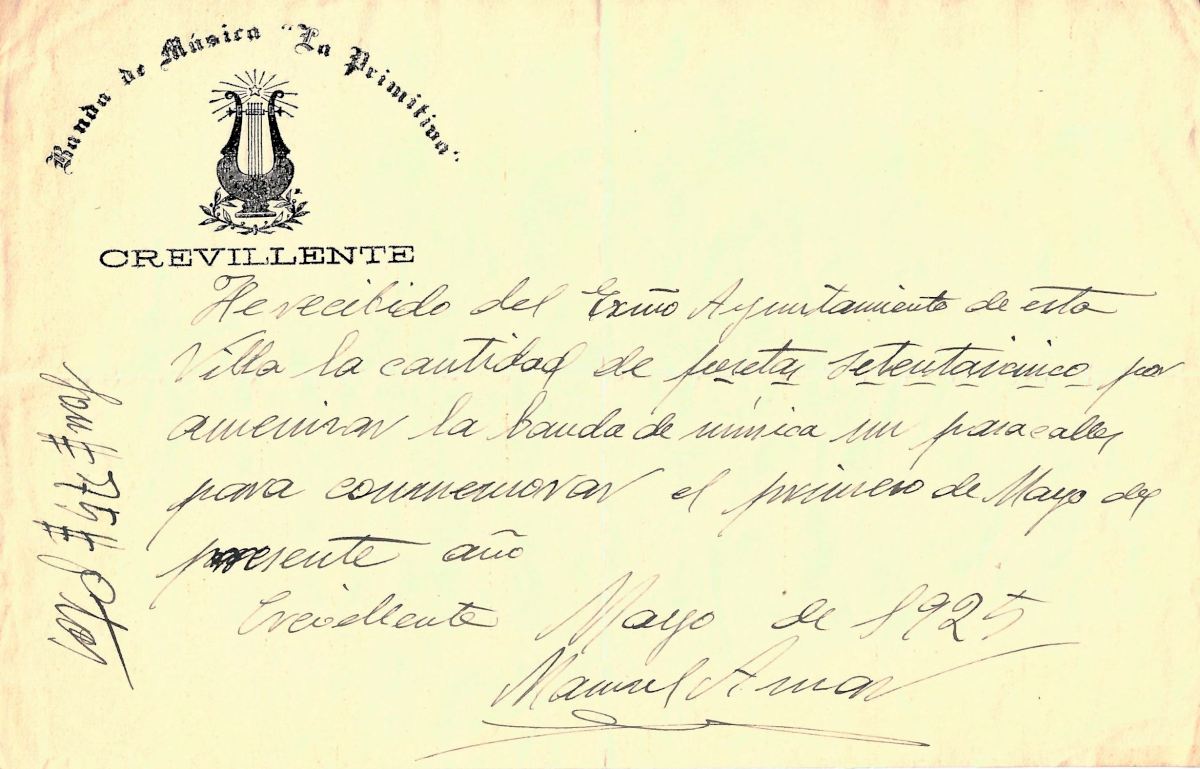 Banda de Música "La Primitiva"
CREVILLENTE
He recibido del Exmo Ayuntamiento de esta
Villa la cantidad de pesetas setentaicinco por
amenizar la banda de música un pasacalles
para conmemorar el primero de Mayo del
presente año
Crevillente Mayo de 1925
Manuel Aznar
Son # 75 # Ptas